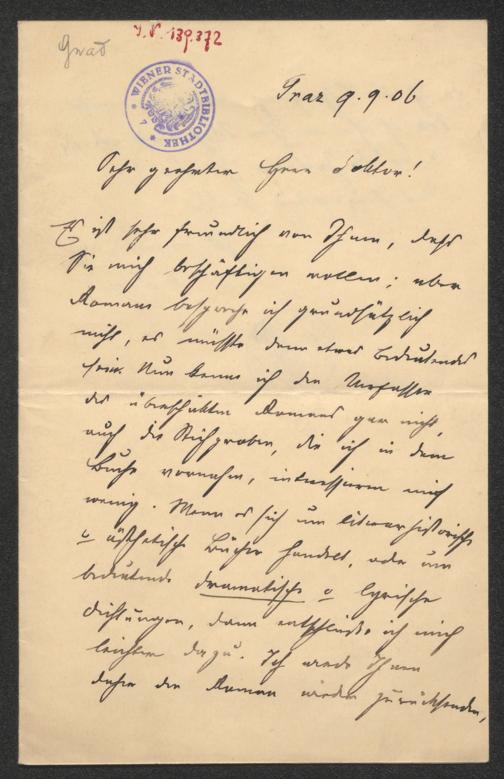 Gnad
J. N. 139.372
WIENER STADTBIBLIOTHEK
7
Graz 9.9.06
Sehr geehrter Herr Doktor!
Es ist sehr freundlich von Ihnen, daß
Sie mich beschäftigen wollen; aber
Romane bespreche ich grundsätzlich
nicht, es müßte denn etwas Bedeutendes
sein. Nun kenne ich den Verfasser
des überschickten Romanes gar nicht,
auch die Stichproben, die ich in dem
Buche vornahm, interessieren mich
wenig. Wenn es sich um literarhistorische
u ästhetische Bücher handelt, oder um
bedeutende dramatische u lyrische
Dichtungen, dann entschließe ich mich
leichter dazu. Ich werde Ihnen
daher den Roman wieder zurücksenden,